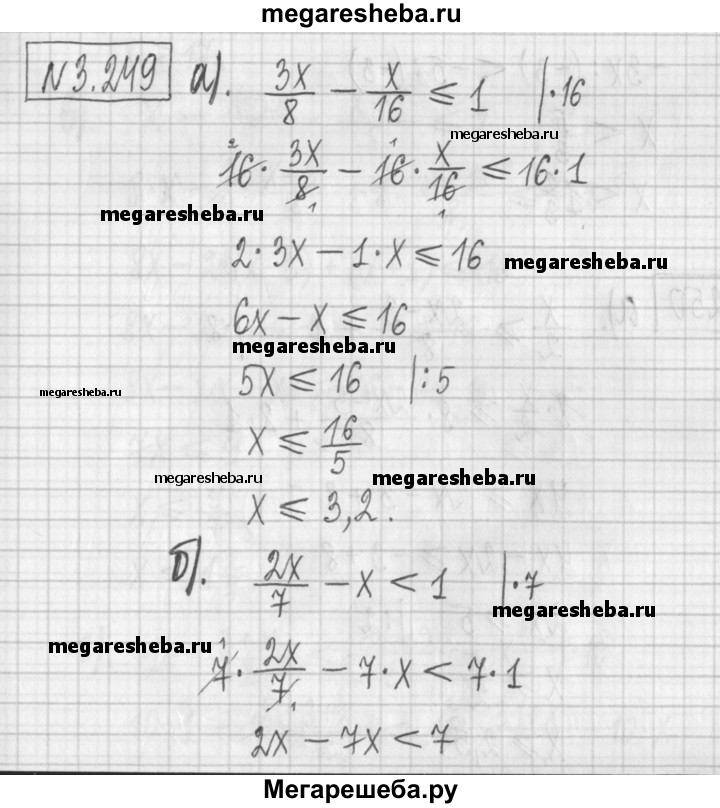 megaresheba.ru
N3.249 а). 3x/8 − x/16 ⩽ 1 |·16
megaresheba.ru
16· 3x/8 − 16· x/16 ⩽ 16·1
megaresheba.ru
2·3x − 1·x ⩽ 16
megaresheba.ru
6x − x ⩽ 16
megaresheba.ru
5x ⩽ 16 |:5
megaresheba.ru
x ⩽ 16/5
megaresheba.ru
megaresheba.ru
x ⩽ 3,2.
б). 2x/7 − x < 1 |·7
megaresheba.ru
megaresheba.ru
7· 2x/7 − 7·x < 7·1
2x − 7x < 7
Мегарешеба.ру